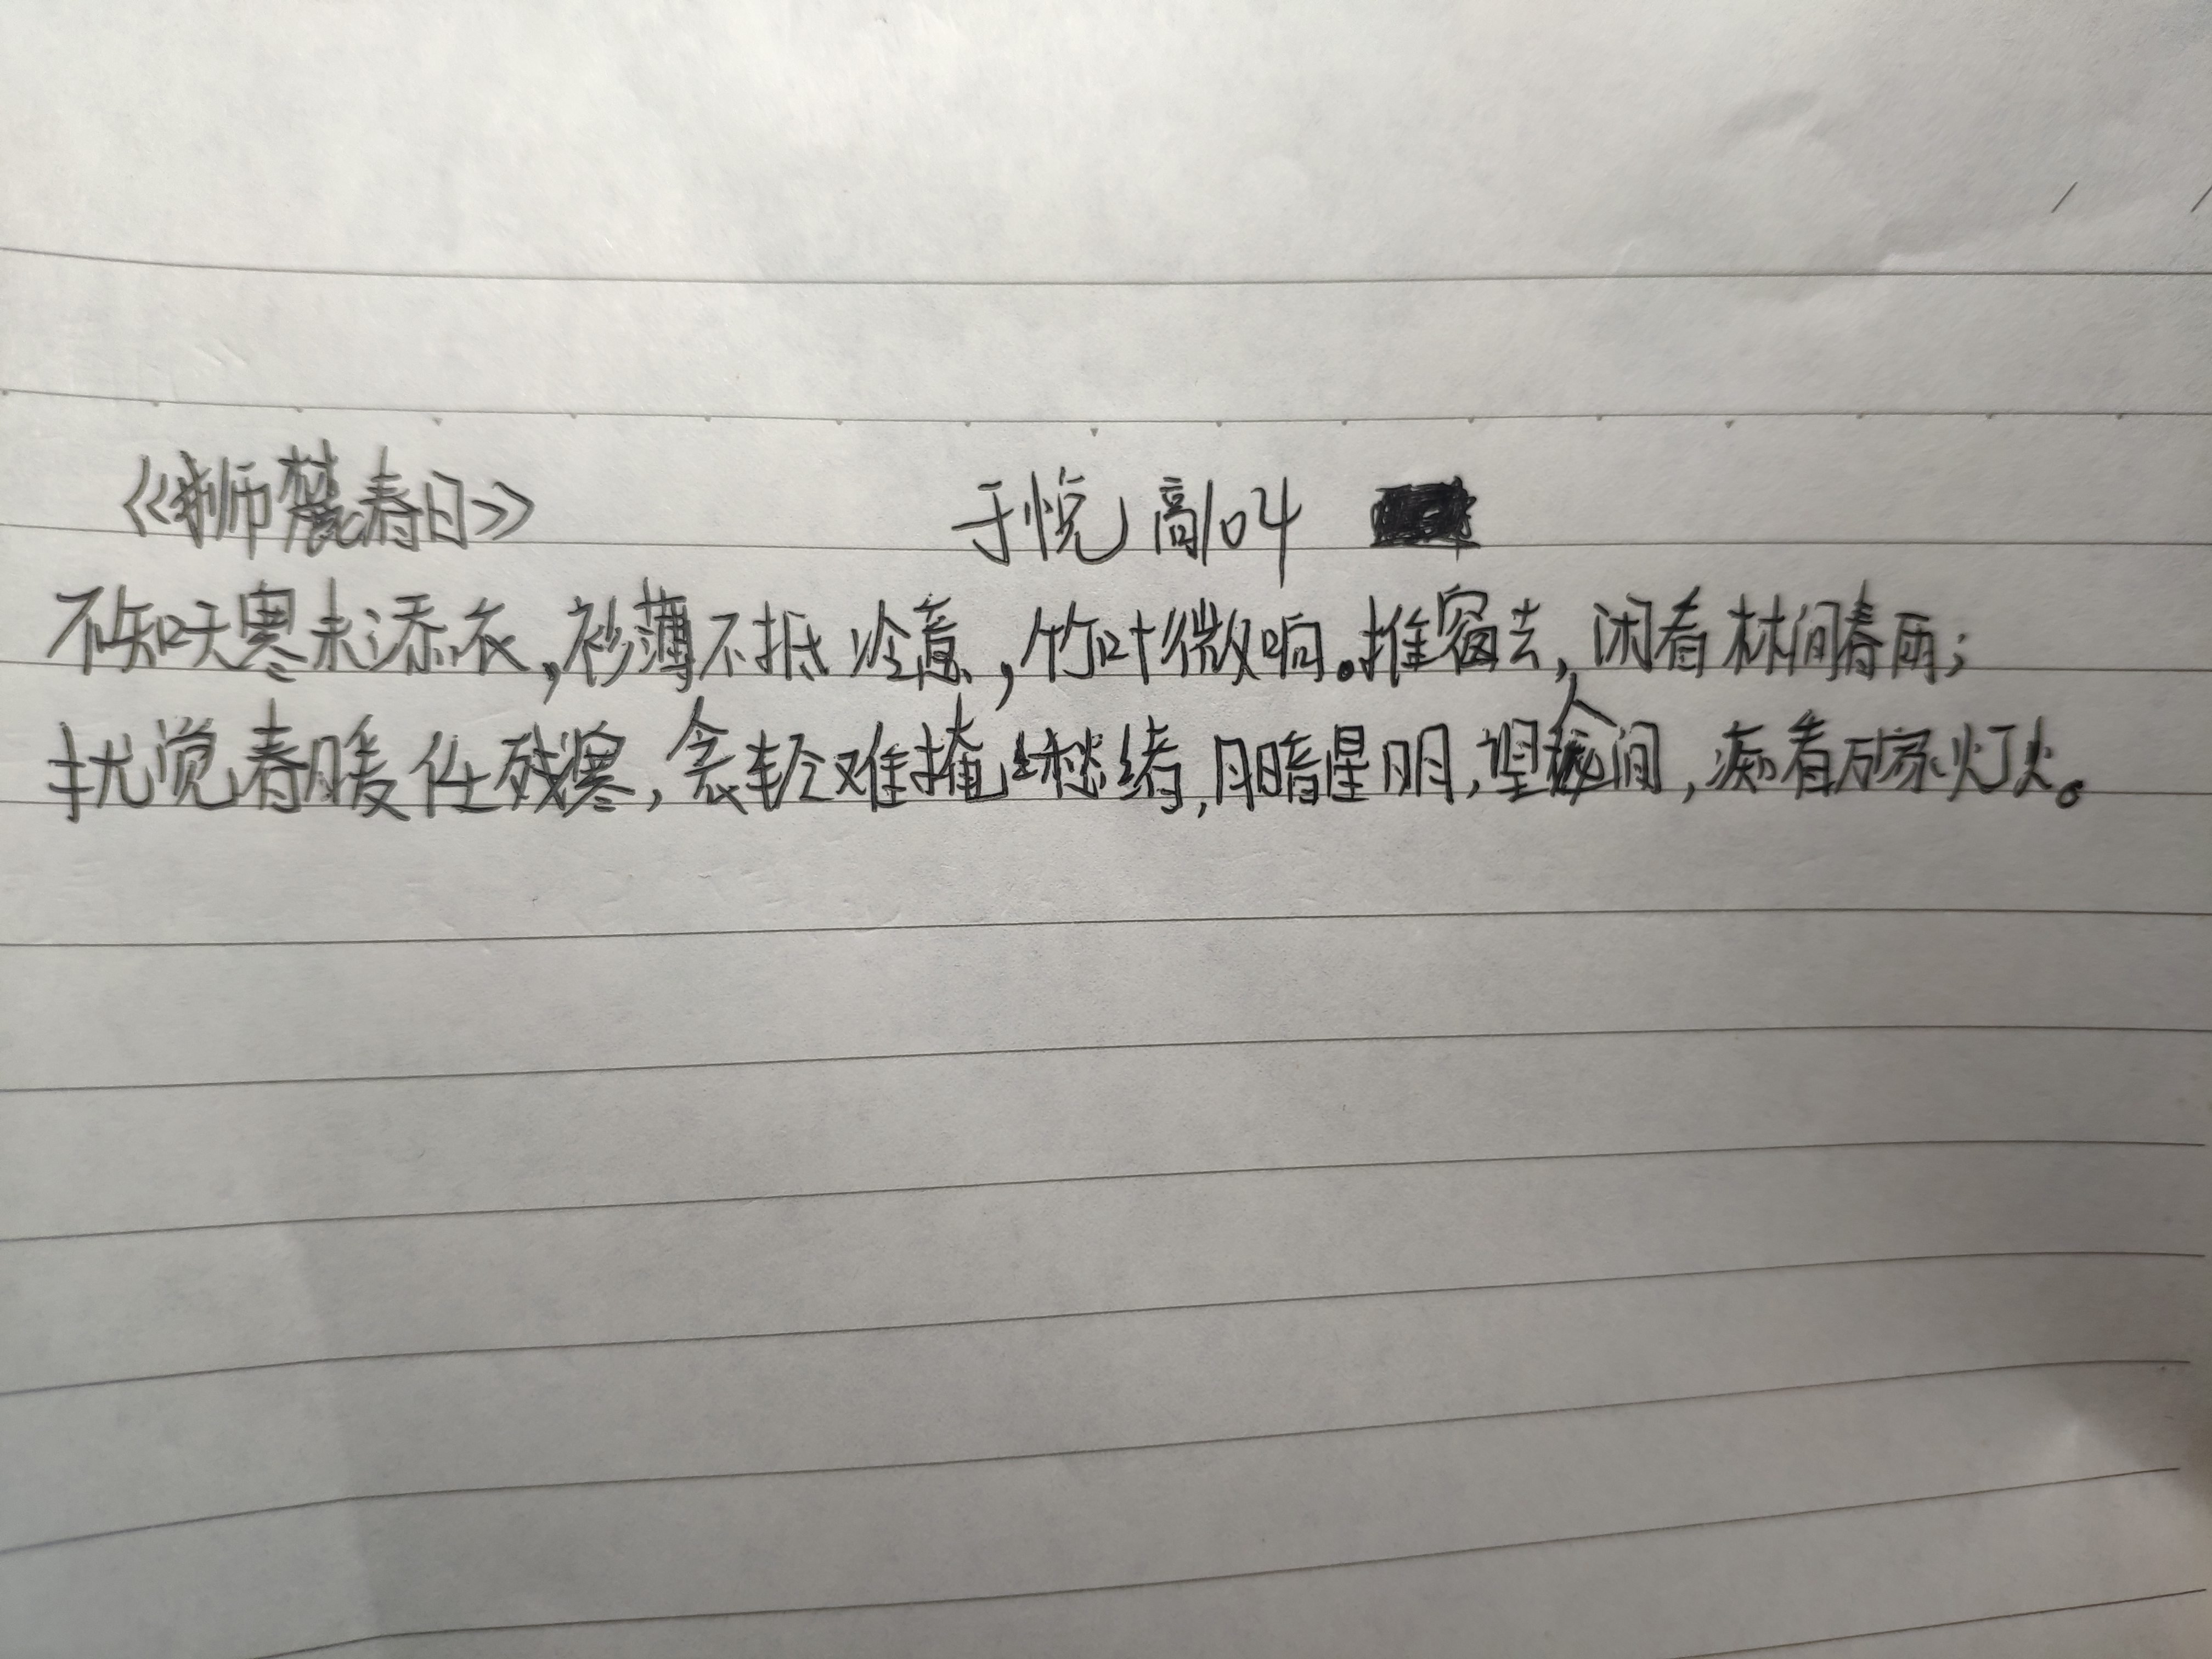 《狮麓春日》 于悦 高104
不知昨寒未添衣,衫薄不抵冷意,竹叶微响。推窗去,闲看林间春雨;
犹觉春暖任残寒,衾轻难掩愁绪,月暗星明,望人间,痴看万家灯火。